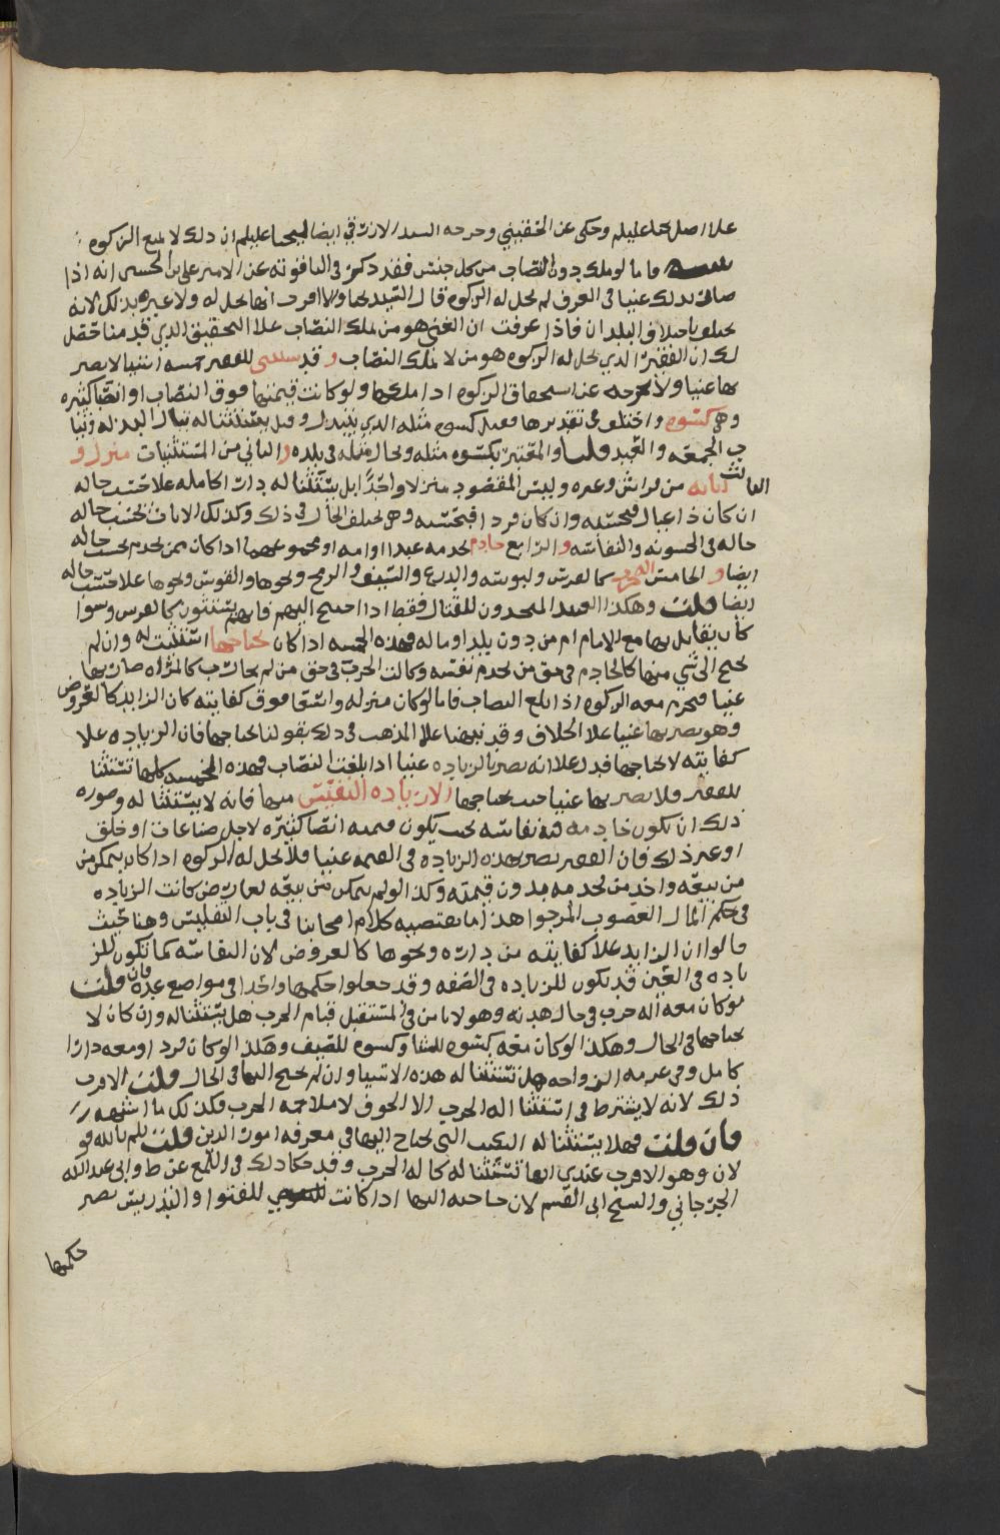 علا اصل يحيا عليلم وحكى عن الحقيني وخرجه السيد الازرقي ايضا ليحيا عليلم ان ذلك لا يمنع الزكوه
فاما لو ملك دون النصاب من كل جنس فقد ذكر في الياقوته عن الامير علي بن الحسين انه اذا
صار بذلك غنيا في العرف لم تحل له الزكوه قال السيد يحيا والاقرب انها تحل له ولا عبره بذلك لانه
يختلف باختلاف البلدان فاذا عرفت ان الغني هو من يملك النصاب علا التحقيق الذي قدمنا تحصل
لك ان الفقير الذي تحل له الزكوه هو من لا يملك النصاب وقد يستثنى للفقير خمسه اشيا لا يصير
بها غنيا ولا تخرجه عن استحقاق الزكوه اذا ملكها ولو كانت قيمتها فوق النصاب او انصبا كثيره
وهي كسوه واختلف في تقديرها فقيل كسوه مثله الذي يتبذل وقيل يستثنا له ثياب البذله وثيا
ب الجمعه والعيد قلنا والمعتبر بكسوه مثله وحال مثله في بلده والثاني من المستثنيات منزل و
الثالث اثاثه من فراش وغيره وليس المقصود منزلا واحدا بل يستثنا له دارا كامله علا حسب حاله
ان كان ذا عيال فبحسبه وان كان فردا فبحسبه وهي تختلف الحال في ذلك وكذلك الاثاث بحسب حاله
حاله في الخشونه والنفاسه والرابع خادم يخدمه عبدا او امه او مجموعهما اذا كان ممن يخدم بحسب حاله
ايضا والخامس اله حرب كالفرس ولبوسه والدرع والسيف والرمح ونحوها والقوس ونحوها علا حسب حاله
ايضا قلت وهكذا العبيد المتخدون للقتال فقط اذا احتيج اليهم فانهم يستثنون كالفرس وسوا
كان يقاتل بها مع الامام ام من دون بلد او ماله فهذه الخمسه اذا كان يحتاجها استثنيت له وان لم
يحتج الى شي منها كالخادم في حق من يخدم نفسه وكالت الحرب في حق من لم يحارب كالمراه صار بها
غنيا فتحرم معه الزكوه اذا بلغ النصاب فاما لو كان منزله واسعا فوق كفايته كان الزايد كالعروض
وهو يصير بها غنيا علا الخلاف وقد نبهنا علا المذهب في ذلك بقولنا يحتاجها فان الزياده علا
كفايته لا يحتاجها فيدل علا انه يصير بالزياده غنيا اذا بلغت النصاب فهذه الخمسه كلها تستثنا
للفقير ولا يصير بها غنيا حيث يحتاجها الا زياده النفيس منها فانه لا يستثنا له وصوره
ذلك ان يكون خادمه فيه نفاسه بحيث يكون قيمته انصبا كثيره لاجل صناعات او خلق
او غير ذلك فان الفقير يصير بهذه الزياده في القيمه غنيا فلا تحل له الزكوه اذا كان يتمكن من
من بيعه واخذ من يخدمه بدون قيمته وكذا لو لم يتمكن من بيعه لعارض كانت الزياده
في حكم المال المغصوب المرجوا هذا ما يقتضيه كلام اصحابنا في باب التفليس وهنا حيث
قالوا ان الزايد علا كفايته من داره ونحوها كالعروض لان النفاسه كما تكون للز
ياده في العين قد تكون للزياده في الصفه وقد جعلوا حكمهما واحدا في مواضع عده فان قلت
لو كان معه اله حرب في حال هدنه وهو لا يامن في المستقبل قيام الحرب هل يستثنا له وان كان لا
يحتاجها في الحال وهكذا لو كان معه كسوه للشتا وكسوه للصيف وهكذا لو كان فردا ومعه دارا
كامل وفي عزمه الزواجه هل تستثنا له هذه الاشيا وان لم يحتج اليها في الحال قلت الاقرب
ذلك لانه لا يشترط في استثنا اله الحرب الا الخوف لا ملاحمه الحرب فكذلك ما اشبهه
فان قلت فهلا يستثنا له الكتب التي يحتاج اليها في معرفه امور الدين قلت للم بالله قو
لان وهو الاقرب عندي انها تستثنا له كاله الحرب وقد حكا ذلك في اللمع عن ط وابي عبد الله
الجرجاني والشيخ ابي القسم لان حاجته اليها اذا كانت للفتوا والتدريس تصير
حكمها